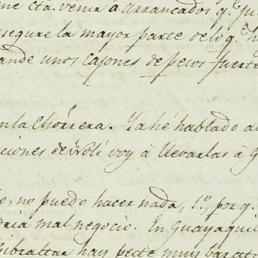 me cta. venir a Arrancados q.e ju
segure la mayor parte de lo q.e
ande unos cajones de pesos fuerte
n la Chorrera. Ya he hablado a
ciones de voy a llevarlas a G
o, no puedo hacer nada, 1.o por q.
dria mal negocio. En Guayaquil
Gibraltar hay peste muy barato